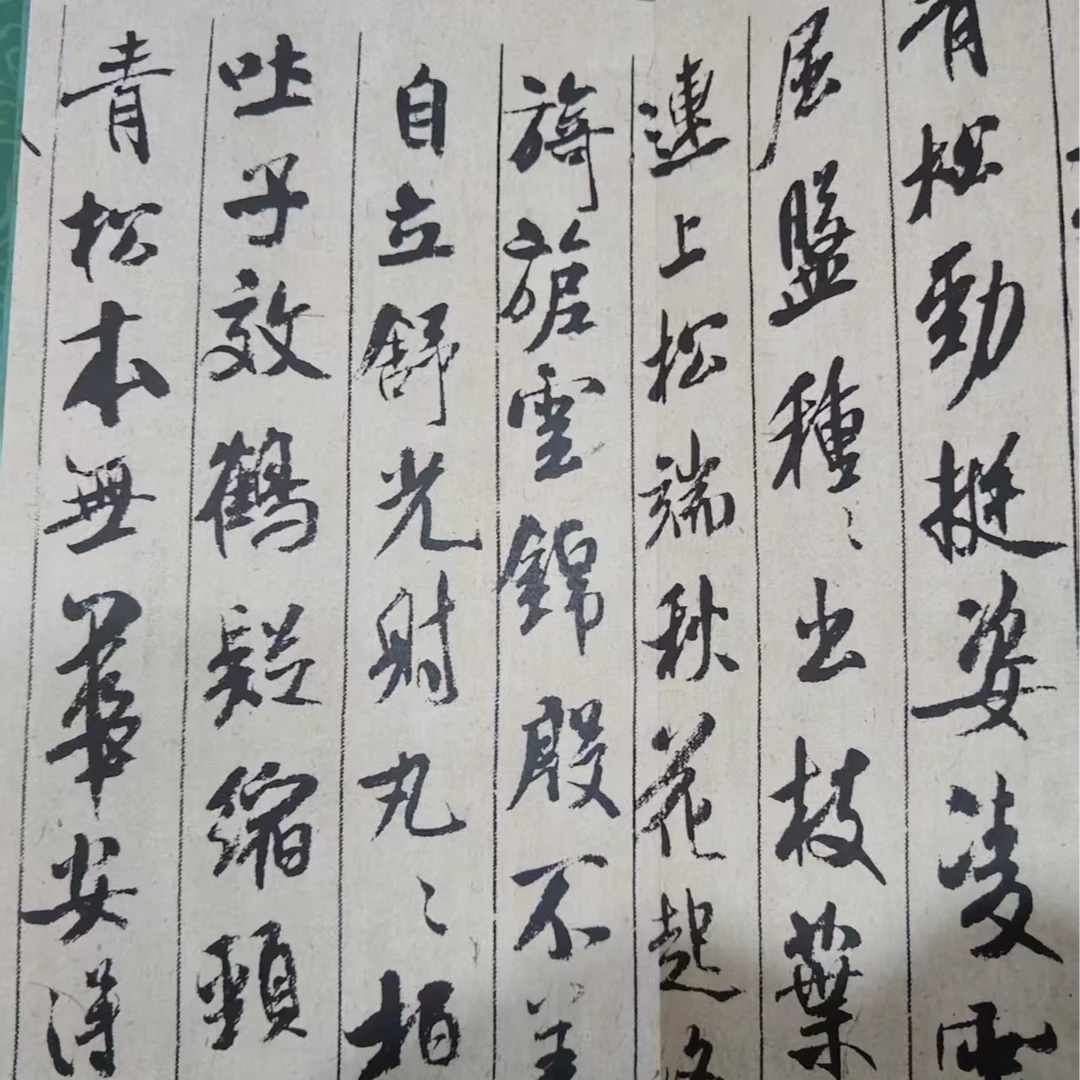 青松勁挺姿凌
屈盤種〻出枝葉
連上松端秋花起
旖旎雲錦殷不
自立舒光射丸〻柏
吐子效鶴疑縮頸
青松本無華安得